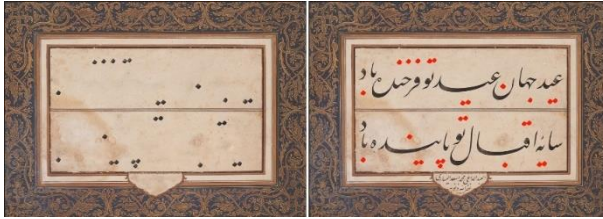 عید جهان عید تو فرخنده باد
سایهٔ اقبال تو پاینده باد